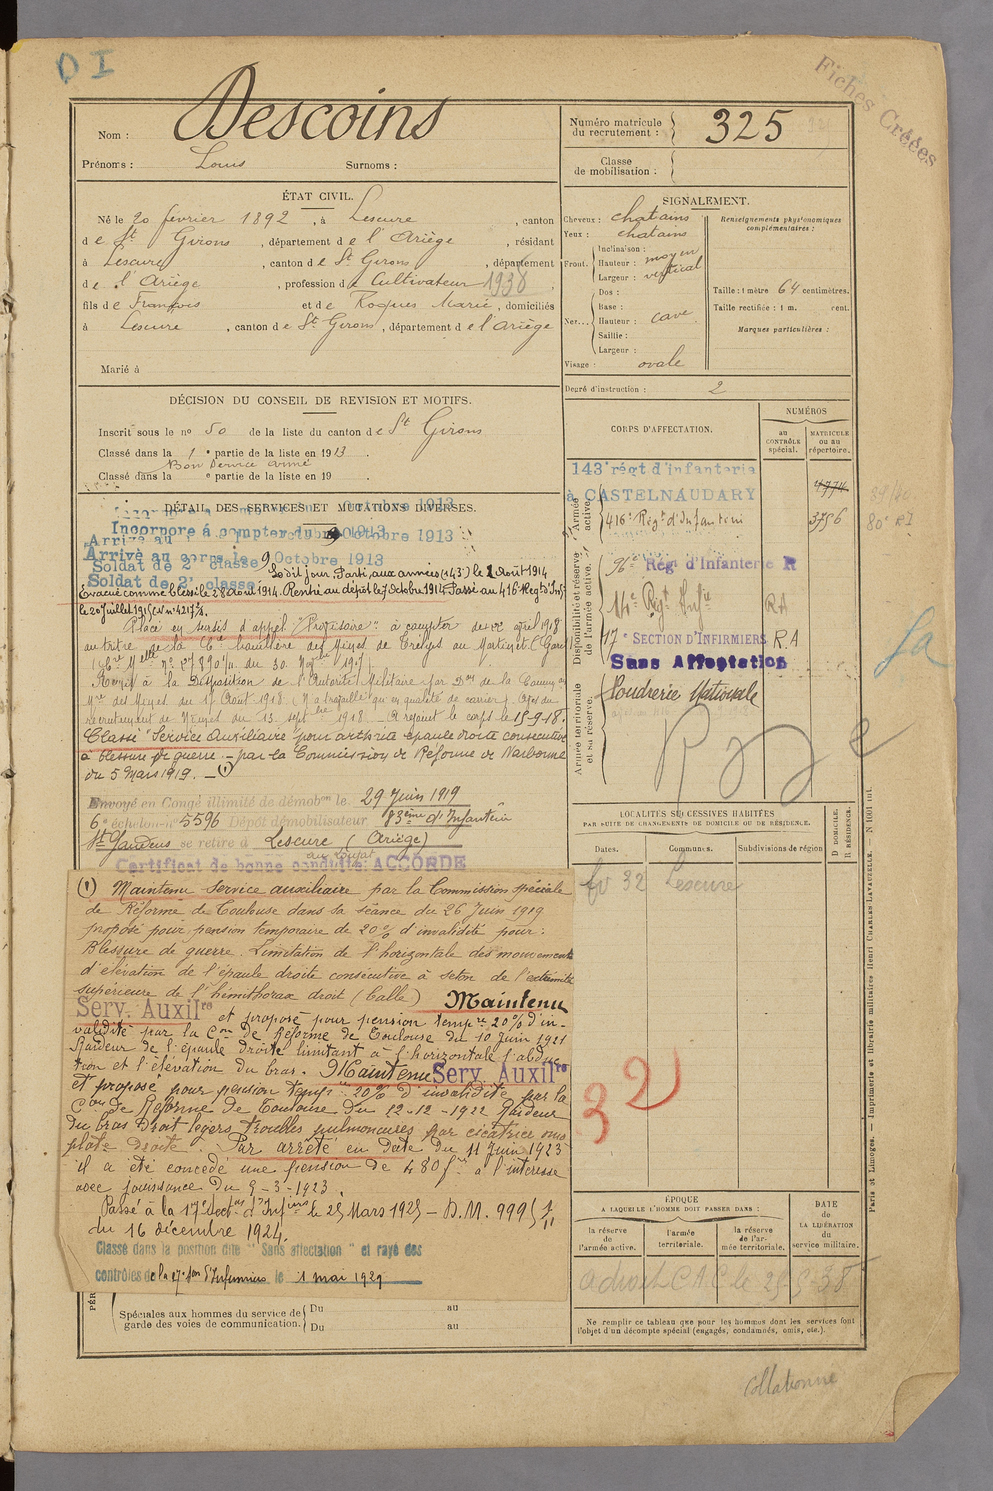 D I
Fiches Créées
Nom : Descoins
Prénoms : Louis Surnoms :
Numéro matricule du recrutement : 325
Classe de mobilisation :
ÉTAT CIVIL.
Né le 20 février 1892, à Lescure, canton
de St Girons, département de l'Ariège, résidant
à Lescure, canton de St Girons, département
de l'Ariège, profession de Cultivateur 1938
fils de François et de Roques Marie, domiciliés
à Lescure, canton de St Girons, département de l'Ariège
Marié à
SIGNALEMENT.
Cheveux : chatains
Yeux : chatains
Front. Inclinaison : moyen
Hauteur : vertical
Largeur :
Nez... Dos :
Base :
Hauteur : cave
Saillie :
Largeur :
Visage : ovale
Renseignements physionomiques complémentaires :
Taille : 1 mètre 64 centimètres.
Taille rectifiée : 1 m. cent.
Marques particulières :
Degré d'instruction : 2
DÉCISION DU CONSEIL DE REVISION ET MOTIFS.
Inscrit sous le no 50 de la liste du canton de St Girons
Classé dans la 1e partie de la liste en 1913.
Bon service armé
Classé dans la e partie de la liste en 19 .
DÉTAIL DES SERVICES ET MUTATIONS DIVERSES.
Octobre 1913
Incorporé à compter du 9 Octobre 1913
Arrivé au corps le 9 Octobre 1913
Soldat de 2e classe
Soldat de 2e classe Ledit jour. Parti aux armées (143e) le 1 Août 1914
Evacué comme blessé le 28 août 1914. Rentré au dépôt le 7 Octobre 1914 Passé au 416e Regt d'Inf
le 20 juillet 1915
Placé en sursis d'appel "Provisoire" à compter du avril 1918
au titre de la Cie houillère des Mines de au Martinet (Gard)
Remis à la Disposition de l'Autorité Militaire par de la
des Mines du 17 Août 1918 (N'a travaillé qu'en qualité de carrier)
recrutement de Nîmes du 13 septbre 1918 - Rejoint le corps le 15-9-18.
Classé "Service Auxiliaire" pour arthrite épaule droite consecutive
à blessure de guerre - par la Commission de Réforme de Narbonne
du 5 Mars 1919. - (1)
Envoyé en Congé illimité de démobon le 29 Juin 1919
6e échelon no 5596 Dépôt démobilisateur 83ème d'Infanterie
St Gaudens se retire à Lescure (Ariège)
Certificat de bonne conduite ACCORDÉ
(1) Maintenu service auxiliaire par la Commission spéciale
de Réforme de Toulouse dans sa séance du 26 Juin 1919
proposé pour pension temporaire de 20% d'invalidité pour :
Blessure de guerre. Limitation de l'horizontale des mouvements
d'élévation de l'épaule droite consécutive à séton de l'extrémité
supérieure de l'hémithorax droit (balle) Maintenu
Serv. Auxilre et proposé pour pension tempre 20% d'in-
validité par la Con de Réforme de Toulouse du 10 Juin 1921
Raideur de l'épaule droite limitant à l'horizontale l'abduc-
tion et l'élévation du bras. Maintenu Serv. Auxilre
et proposé pour pension tempre 20% d'invalidité par la
Con de Réforme de Toulouse du 12-12-1922 Raideur
du bras droit légers troubles pulmonaires par cicatrice omo
plate droite. Par arrêté en date du 11 Juin 1923
il a été concédé une pension de 480f à l'intéressé
avec jouissance du 9-3-1923.
Passé à la 17e Secton d'Infiers le 25 Mars 1925 - D.M. 9995
du 16 décembre 1924.
Classé dans la position dite "Sans affectation" et rayé des
contrôles de la 17e Son d'Infirmiers le 1 mai 1929
CORPS D'AFFECTATION.
NUMÉROS
au CONTRÔLE spécial.
MATRICULE ou au répertoire.
Armée active.
143e régt d'infanterie
à CASTELNAUDARY 4774
416e Régt d'Infanterie 3756
89/
80e RI
Disponibilité et réserve de l'armée active.
96e Rég. d'Infanterie R
14e Regt Infie RA
17e SECTION D'INFIRMIERS R.A
Sans Affectation
Armée territoriale et sa réserve.
Poudrerie Nationale
Sa
LOCALITÉS SUCCESSIVES HABITÉES
PAR SUITE DE CHANGEMENTS DE DOMICILE OU DE RÉSIDENCE.
Dates. Communes. Subdivisions de région D DOMICILE. R RÉSIDENCE.
fv 32 Lescure
32
ÉPOQUE
A LAQUELLE L'HOMME DOIT PASSER DANS :
la réserve de l'armée active.
l'armée territoriale.
la réserve de l'armée territoriale.
DATE de LA LIBÉRATION du service militaire.
Ne remplir ce tableau que pour les hommes dont les services font
l'objet d'un décompte spécial (engagés, condamnés, omis, etc.).
Spéciales aux hommes du service de garde des voies de communication.
Du au
Du au
Paris et Limoges. — Imprimerie et librairie militaires Henri CHARLES-LAVAUZELLE. — N 1001 int.
Collationné